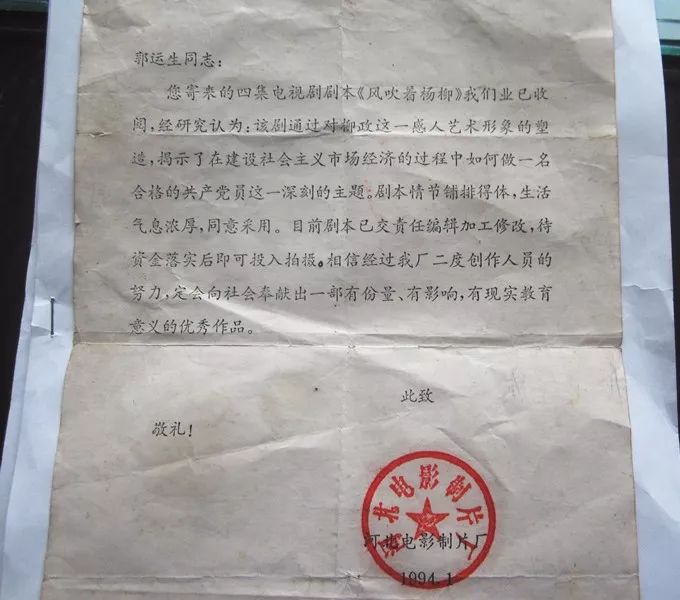 郭运生同志:
您寄来的四集电视剧剧本《风吹着杨柳》我们业已收
阅,经研究认为:该剧通过对柳政这一感人艺术形象的塑
造,揭示了在建设社会主义市场经济的过程中如何做一名
合格的共产党员这一深刻的主题。剧本情节铺排得体,生活
气息浓厚,同意采用。目前剧本已交责任编辑加工修改,待
资金落实后即可投入拍摄。相信经过我厂二度创作人员的
努力,定会向社会奉献出一部有份量、有影响,有现实教育
意义的优秀作品。
此致
敬礼!
河北电影制片厂
河北电影制片厂
1994.1